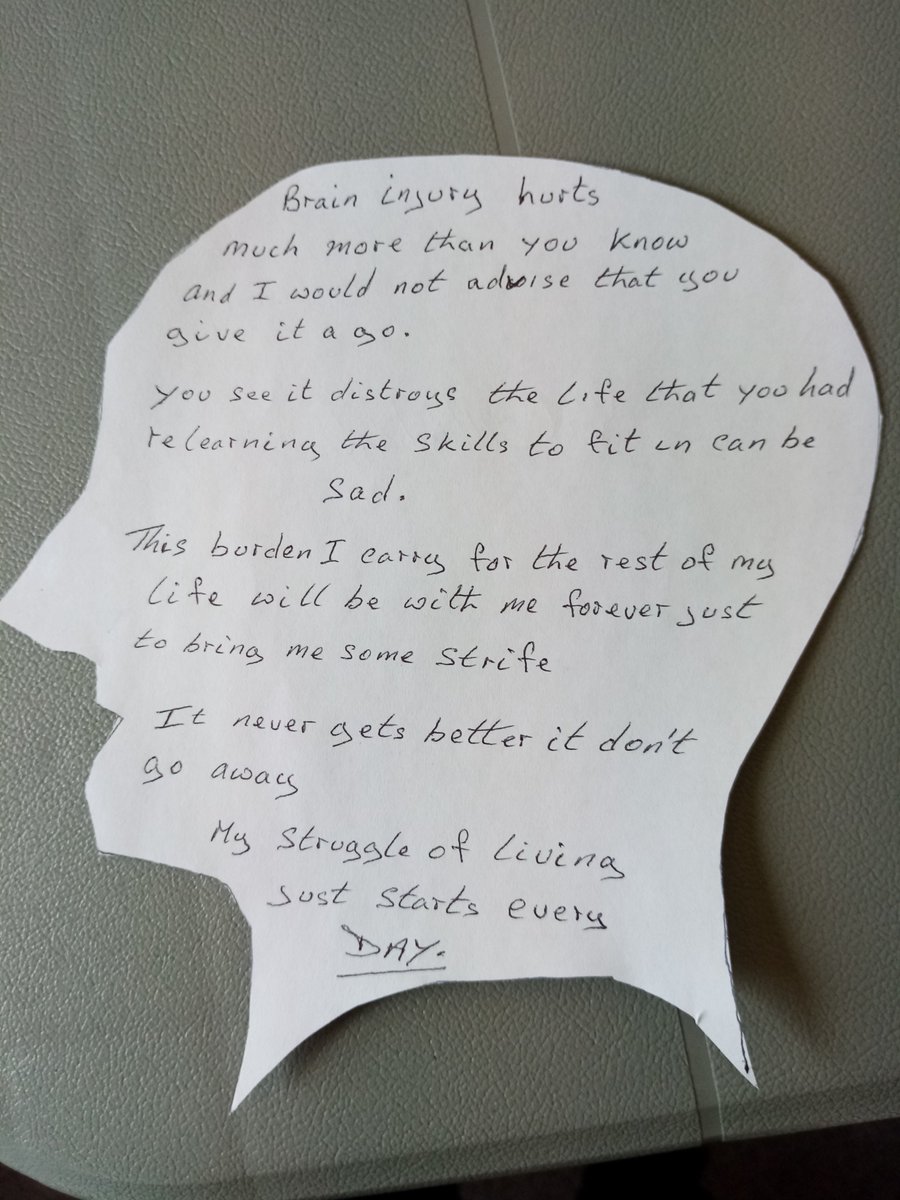 Brain injury hurts
much more than you know
and I would not advise that you
give it a go.
you see it distroys the life that you had
relearning the skills to fit in can be
sad.
This burden I carry for the rest of my
life will be with me forever just
to bring me some strife
It never gets better it don't
go away
My struggle of living
just starts every
DAY.